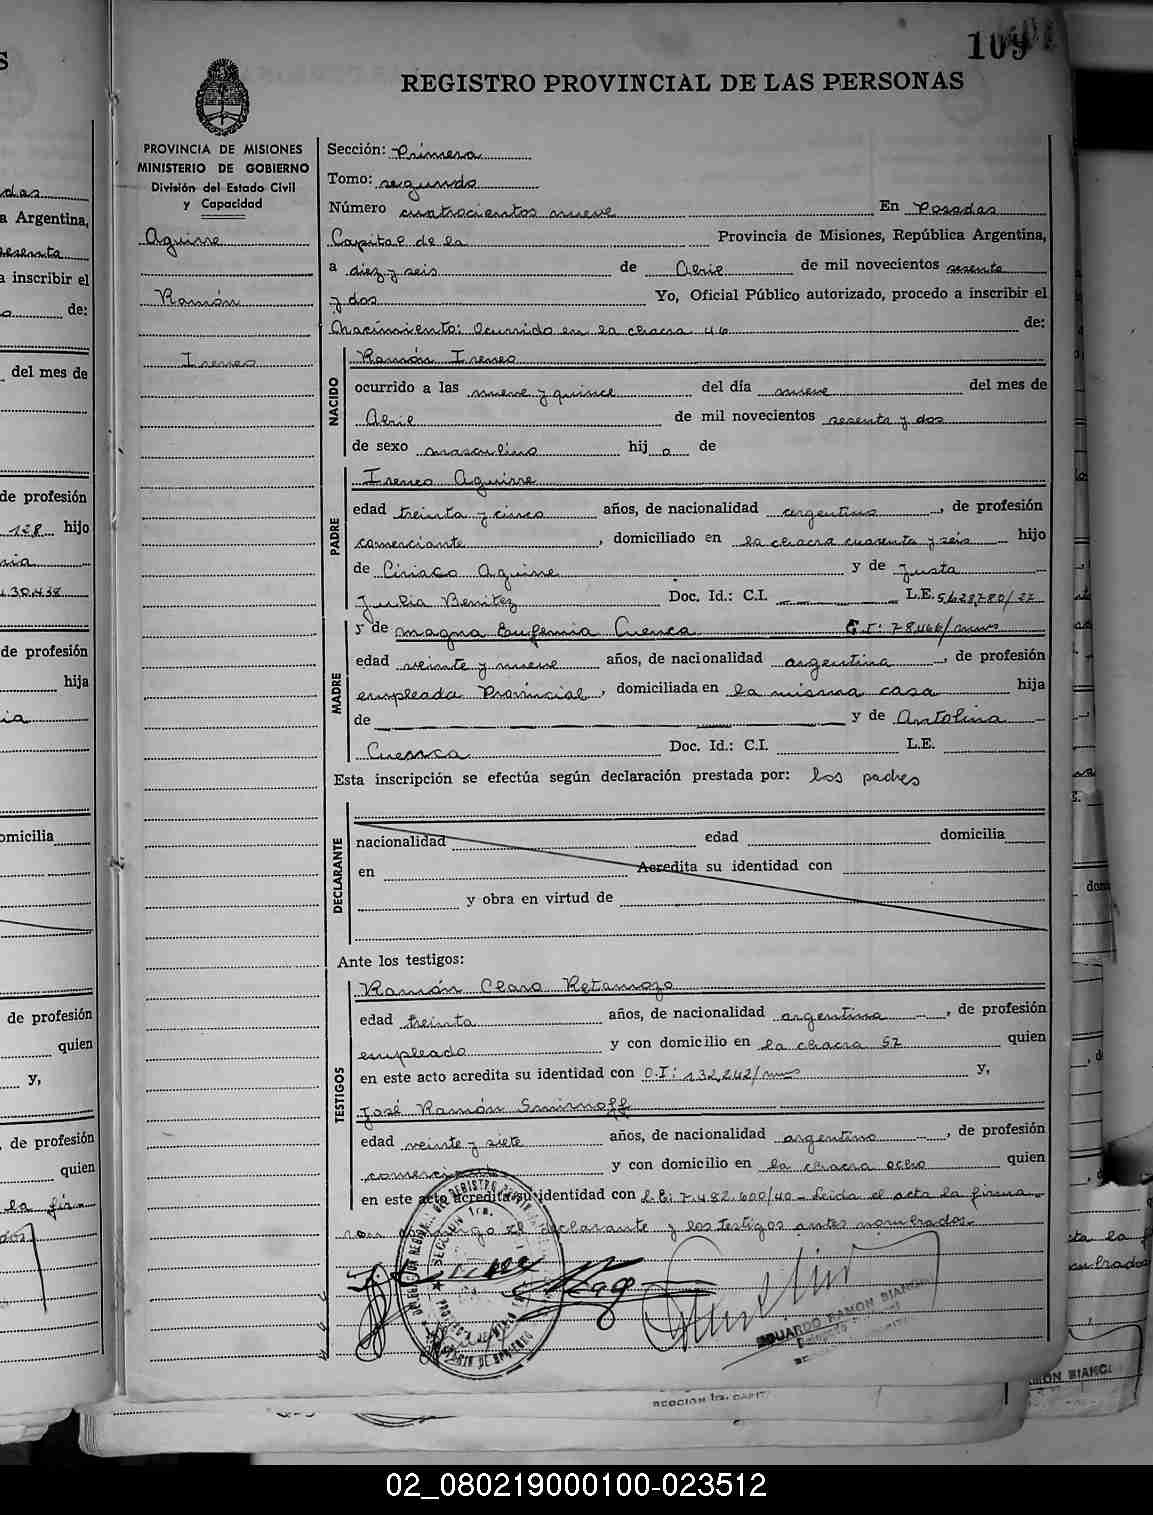 109
REGISTRO PROVINCIAL DE LAS PERSONAS
PROVINCIA DE MISIONES
MINISTERIO DE GOBIERNO
División del Estado Civil
y Capacidad
Aguirre
Ramón
Ireneo
Sección: Primera
Tomo: segundo
Número cuatrocientos nueve En Posadas
Capital de la Provincia de Misiones, República Argentina,
a diez y seis de Abril de mil novecientos sesenta
y dos Yo, Oficial Público autorizado, procedo a inscribir el
Nacimiento: Ocurrido en la chacra 46 de:
NACIDO
Ramón Ireneo
ocurrido a las nueve y quince del día nueve del mes de
Abril de mil novecientos sesenta y dos
de sexo masculino hij o de
PADRE
Ireneo Aguirre
edad treinta y cinco años, de nacionalidad argentino, de profesión
comerciante, domiciliado en la chacra cuarenta y seis hijo
de Ciriaco Aguirre y de Justa
Julia Benitez Doc. Id.: C.I. L.E. 5.628.780/27
MADRE
y de Magna Eufemia Cuenca C.I: 78.466/mns
edad veinte y nueve años, de nacionalidad argentina, de profesión
empleada Provincial, domiciliada en la misma casa hija
de y de Antolina
Cuenca Doc. Id.: C.I. L.E.
Esta inscripción se efectúa según declaración prestada por: los padres
DECLARANTE
nacionalidad edad domicilia
en Acredita su identidad con
y obra en virtud de
Ante los testigos:
TESTIGOS
Ramón Claro Retamozo
edad treinta años, de nacionalidad argentina, de profesión
empleado y con domicilio en la chacra 57 quien
en este acto acredita su identidad con C.I: 132,242/mns y,
José Ramón Smirnoff
edad veinte y siete años, de nacionalidad argentino, de profesión
comerciante y con domicilio en la chacra ocho quien
en este acto acredita su identidad con L.E: 7.482.600/40 - Leida el acta la firma
declarante y los testigos antes nombrados.
EDUARDO RAMON BIANCHI
SECCION 1ra. CAPIT
02_080219000100-023512